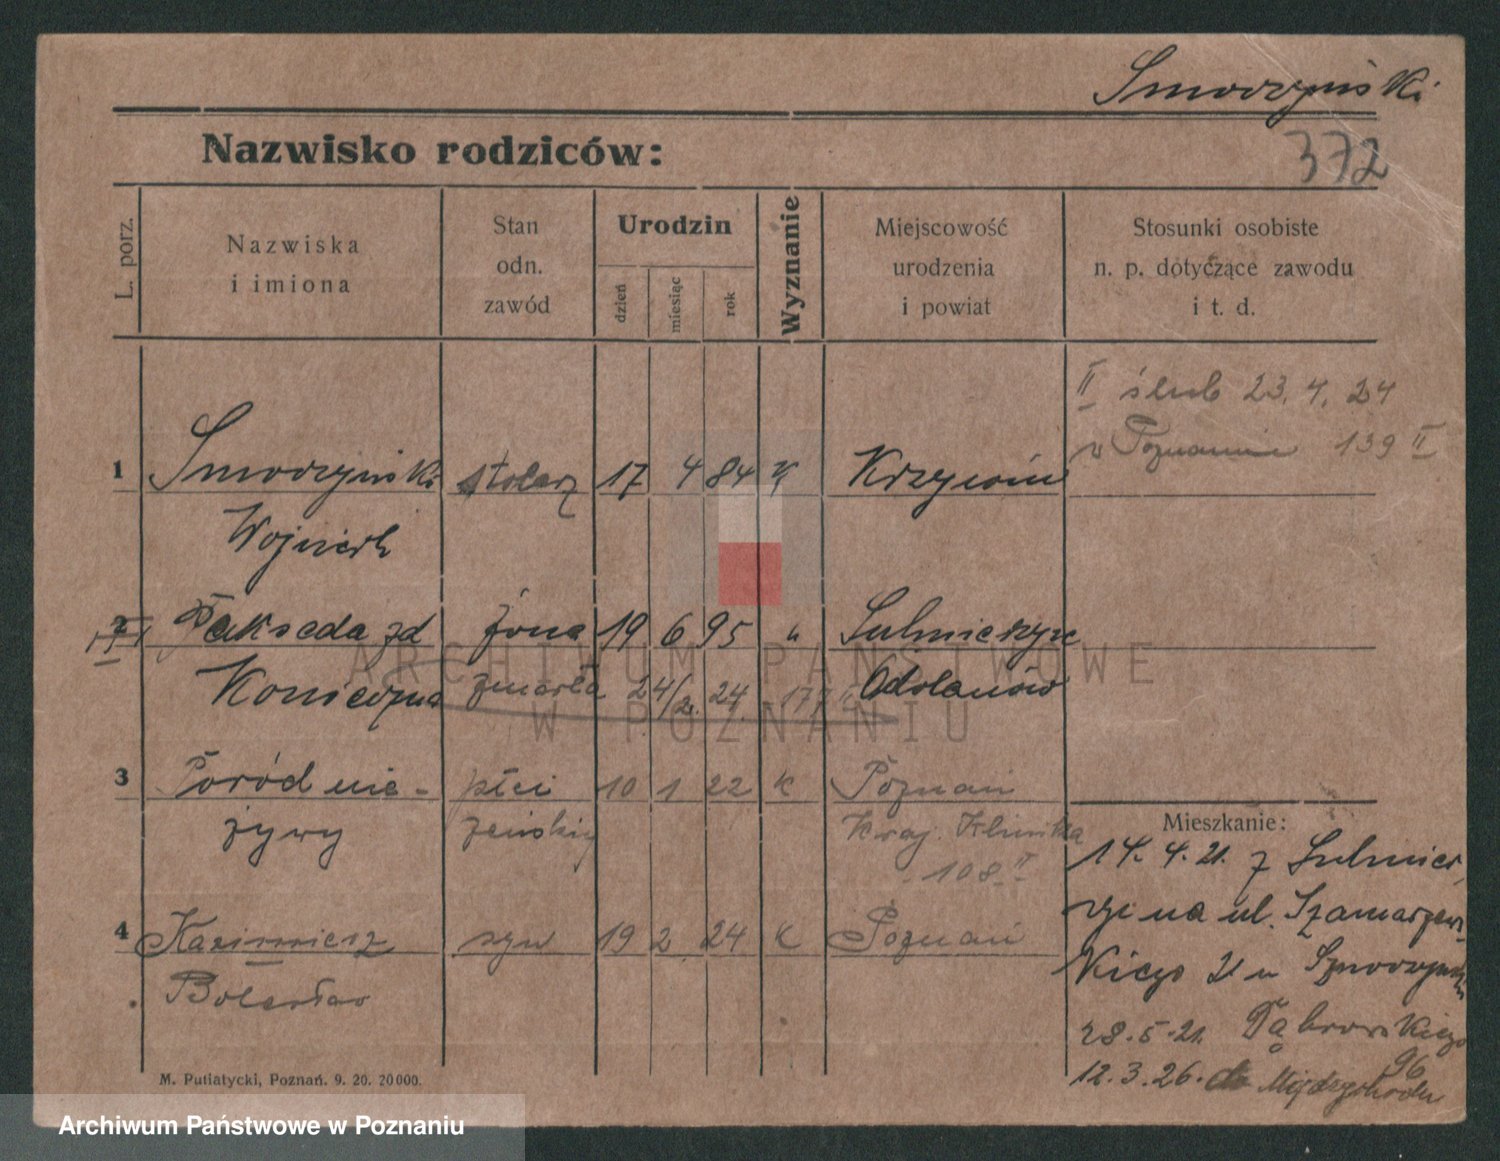 Smorzyński
372
Nazwisko rodziców:
L. porz.
Nazwiska
i imiona
Stan
odn.
zawód
Urodzin
dzień
miesiąc
rok
Wyznanie
Miejscowość
urodzenia
i powiat
Stosunki osobiste
n. p. dotyczące zawodu
i t. d.
II ślub 23. 4. 24
v Poznaniu 139 II
1 Smorzyński stolarz 17 4 84 K Krzywiń
Wojciech
2 zd żona 19 6 95 " Sulmierzyce
Konieczna zmarła 24/2. 24. Odolanów
ARCHIWUM PAŃSTWOWE
W POZNANIU
3 Poród nie- płci 10 1 22 K Poznań
żywy żeńskiej Kraj. Klinika
108 II
4 Kazimierz syn 19 2 24 K Poznań
Bolesław
Mieszkanie:
14. 4. 21. z Sulmier
zyc na ul. Szamarzew-
kiego 21 u Smorzyński
28. 5. 21. Dąbrowskiego
96
12. 3. 26. do Międzychodu
M. Putiatycki, Poznań. 9. 20. 20000.
Archiwum Państwowe w Poznaniu